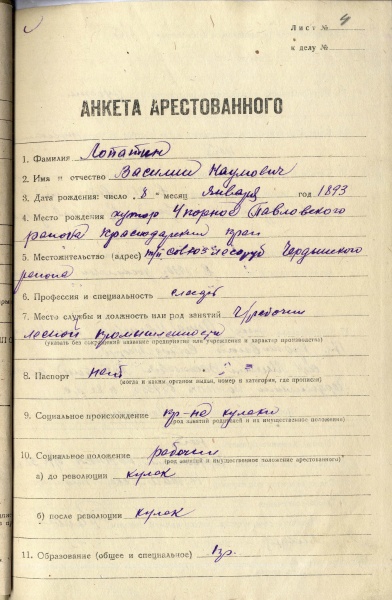 Лист № 4
к делу №
АНКЕТА АРЕСТОВАННОГО
1. Фамилия Лопатин
2. Имя и отчество Василий Наумович
3. Дата рождения: число 8 " месяц января год 1893
4. Место рождения хутор Упорное Павловского
района Краснодарский край
5. Местожительство (адрес) Чердынского
района
6. Профессия и специальность
7. Место службы и должность или род занятий рабочий
лесной промышленности
(указать без сокращений название предприятия или учреждения и характер производства)
8. Паспорт нет
(когда и каким органом выдан, номер и категория, где прописан)
9. Социальное происхождение кр-не кулаки
(род занятий родителей и их имущественное положение)
10. Социальное положение рабочий
(род занятий и имущественное положение арестованного)
а) до революции кулак
б) после революции кулак
11. Образование (общее и специальное)